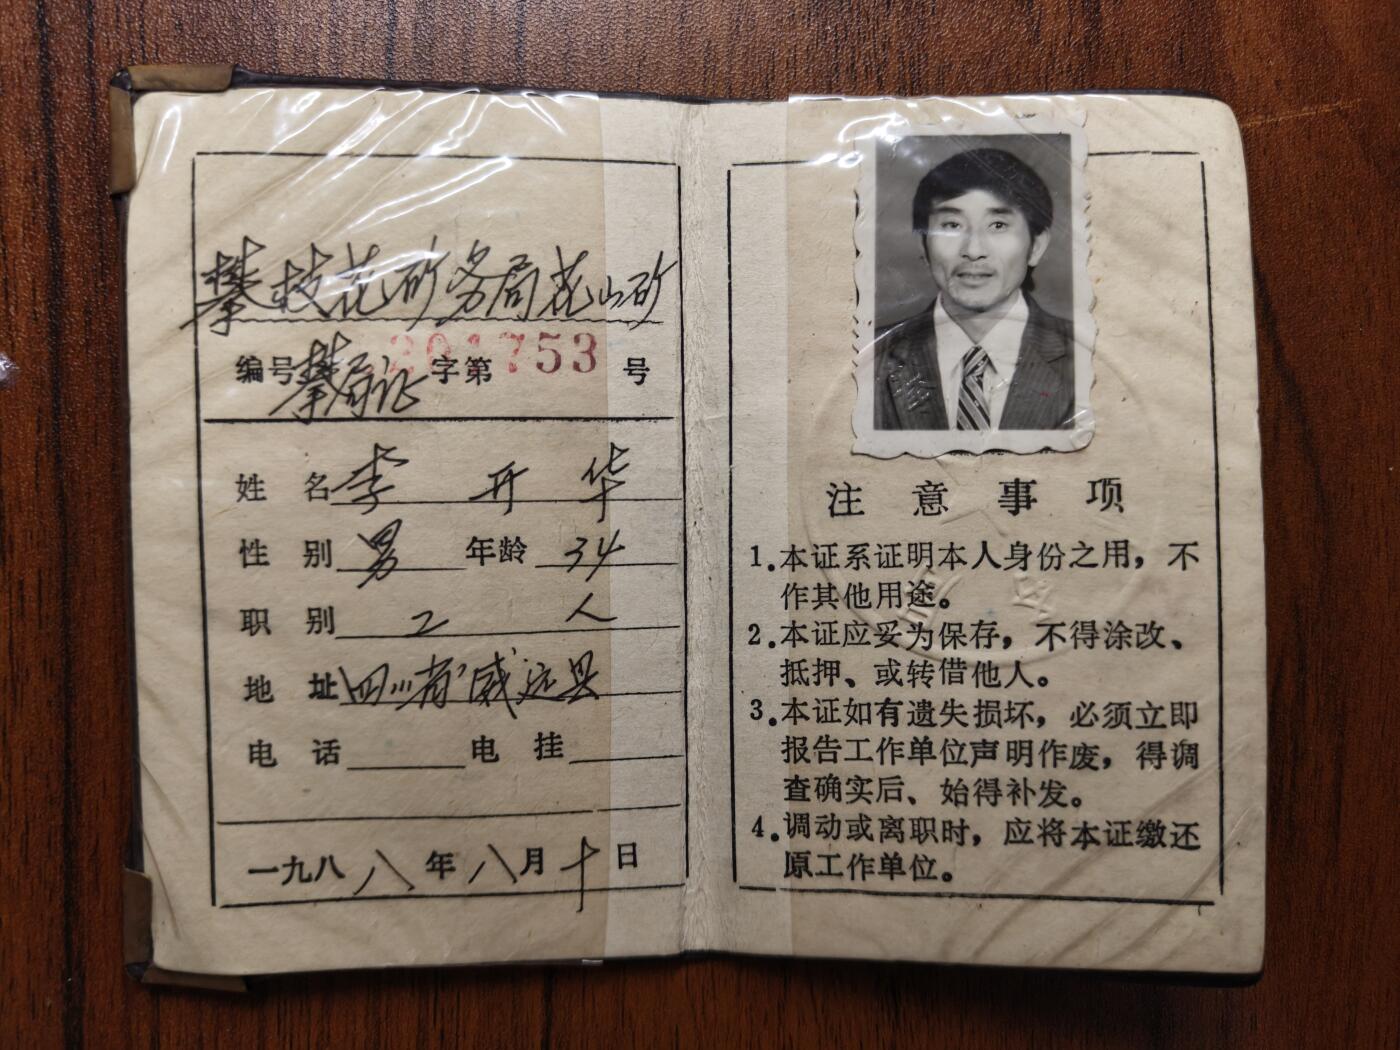 攀枝花矿务局花山矿
编号攀局证字第201753号
姓名李开华
性别男年龄34
职别工人
地址四川省威远县
电话 电挂
一九八八年八月十日
注意事项
1.本证系证明本人身份之用，不
作其他用途。
2.本证应妥为保存，不得涂改、
抵押、或转借他人。
3.本证如有遗失损坏，必须立即
报告工作单位声明作废，得调
查确实后、始得补发。
4.调动或离职时，应将本证缴还
原工作单位。